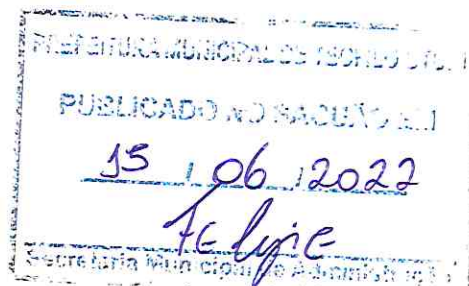 PREFEITURA MUNICIPAL DE
PUBLICADO NO
15 / 06 / 2022
Felipe
Secretaria Municipal de Administração